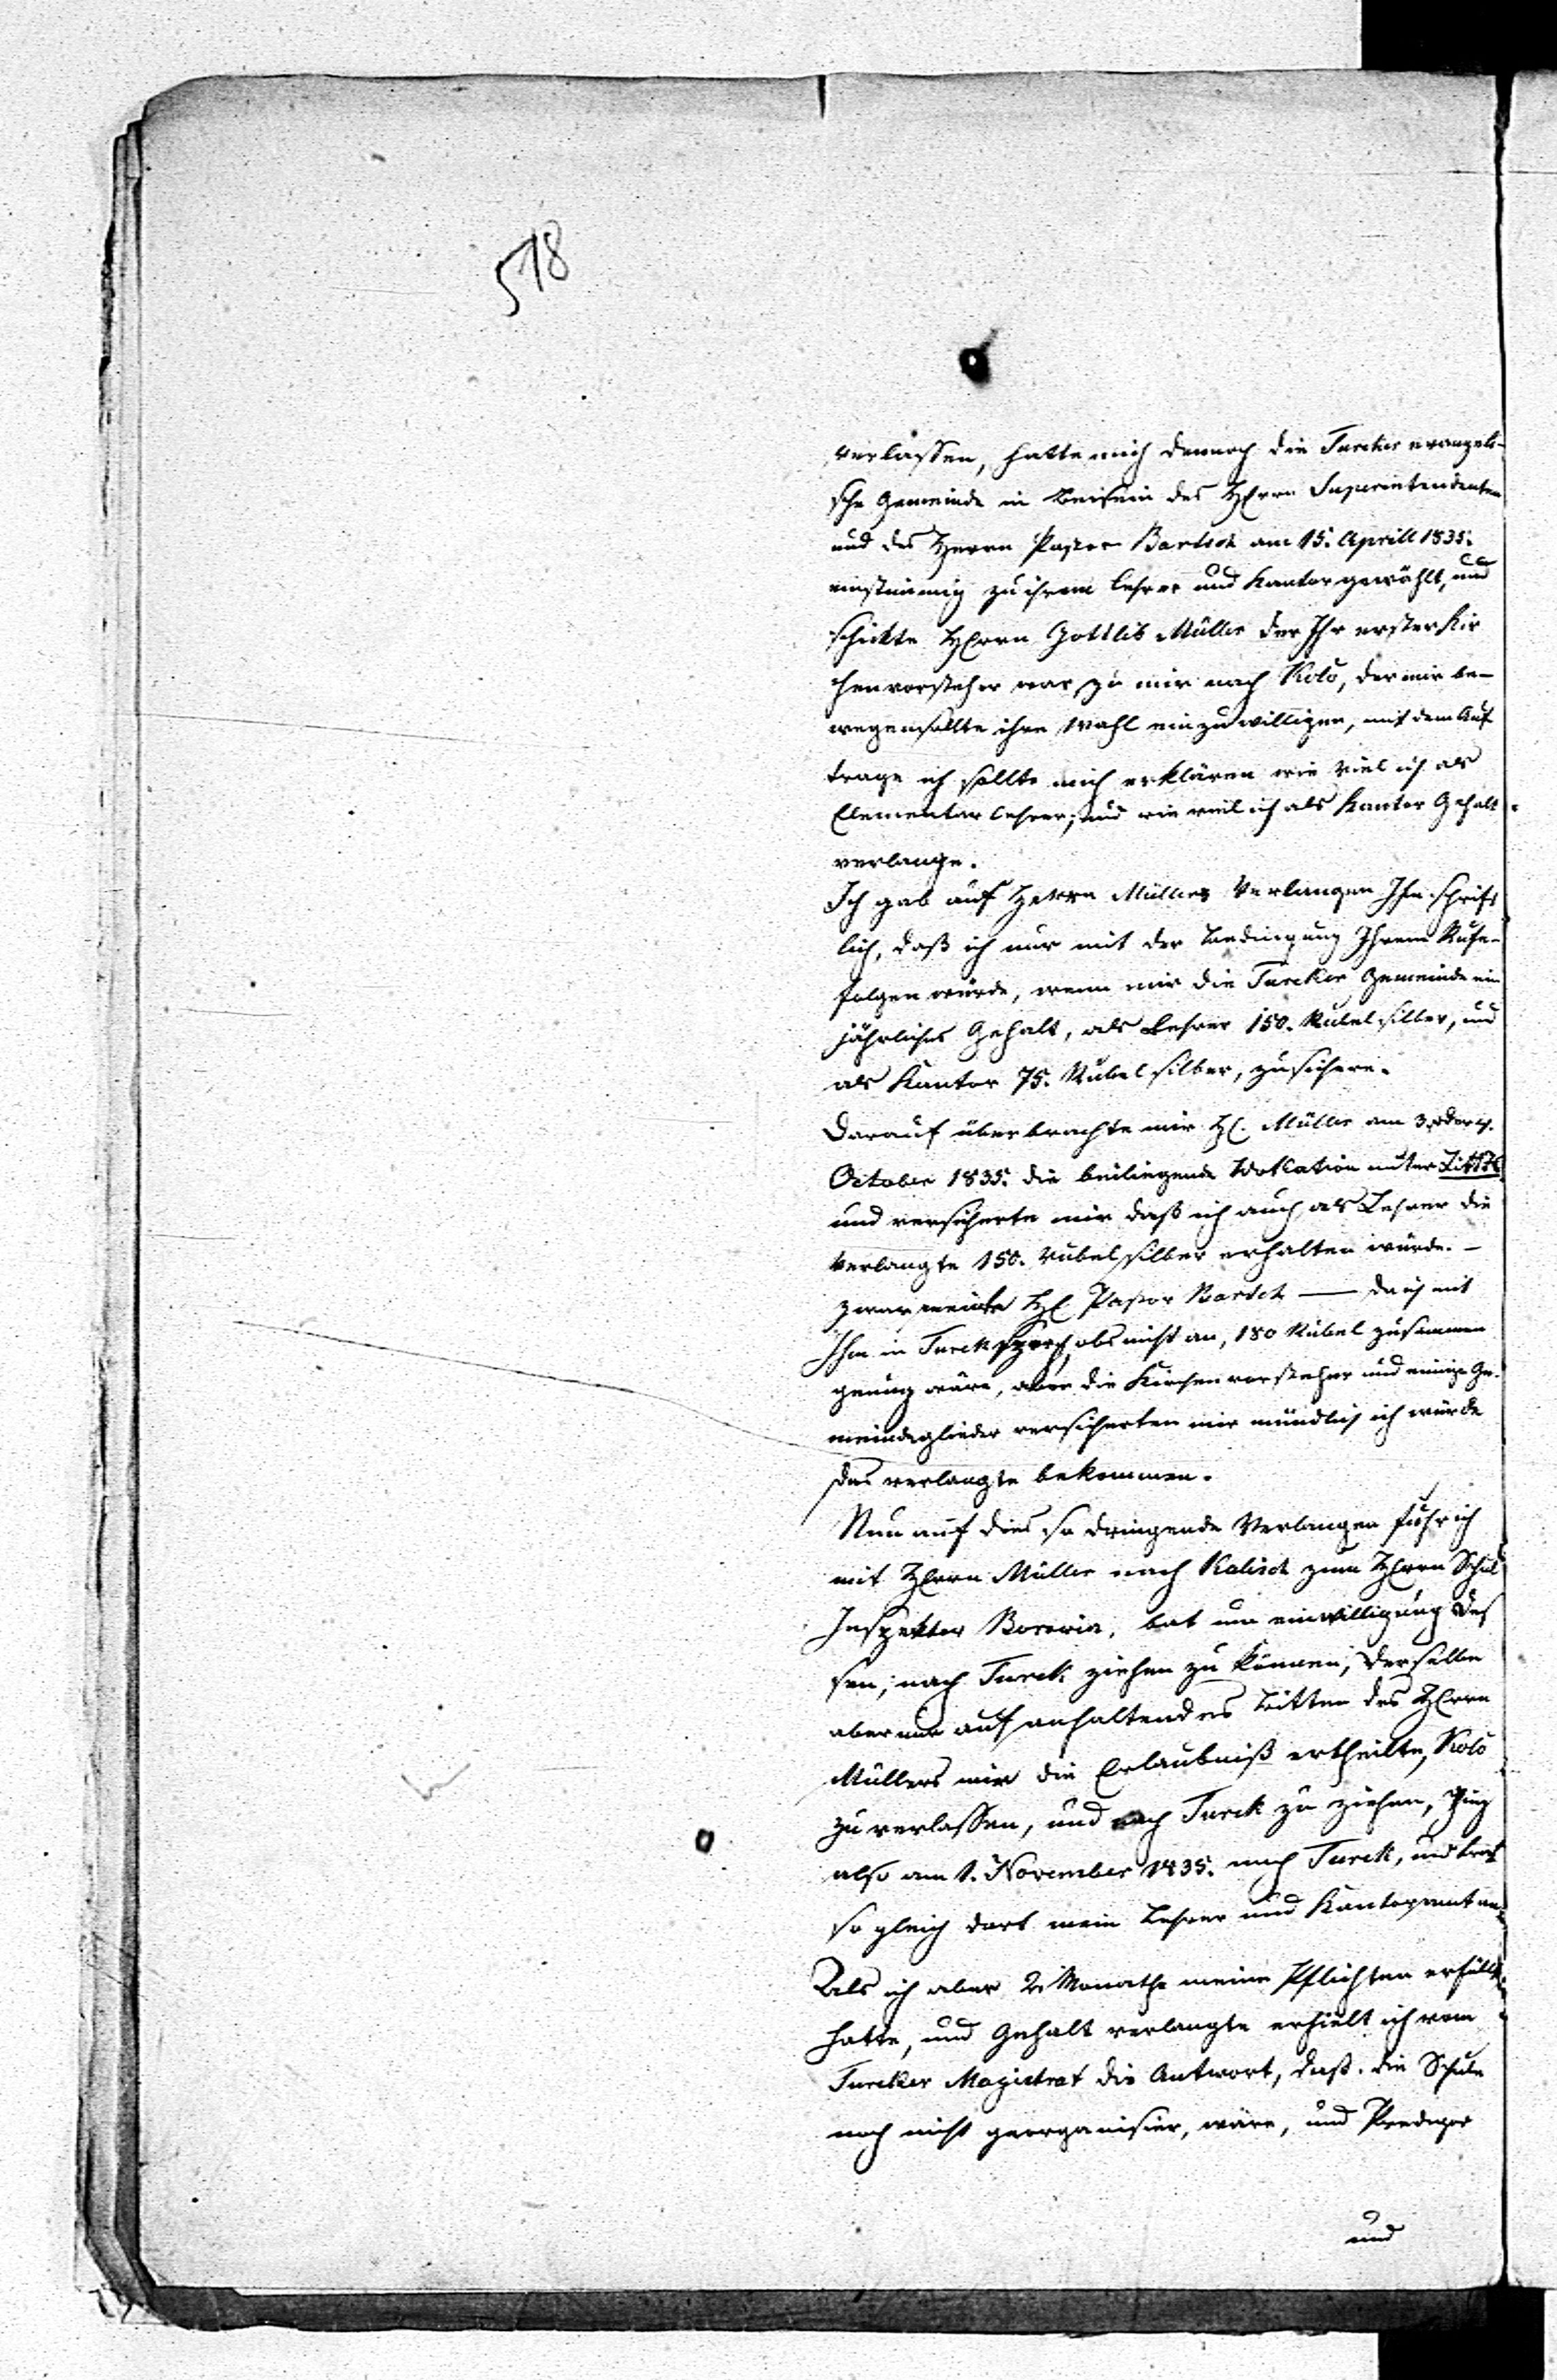 518
verlassen, hatte mich dennoch die Turcker evangeli-
sche Gemeinde in Beisein des HErrn Superintendenten
und des Herrn Pastor Bartsch am 15. Aprill 1835.
einstimmig zu ihrem Lehrer und Kantor gewählt, und
schickte HErrn Gottlib Müller der Ihr erster Kir
chenvorsteher war zu mir nach Kolo, der mir be-
wegen sollte ihre Wahl einzuwilligen, mit dem Auf
trage ich sollte mich erklären wie viel ich als
Elementar Lehrer; und wie viel ich als Kantor Gehalt
verlange.
Ich gab auf Herrn Müllers Verlangen Ihm schrift
lich, daß ich nur mit der Bedingung Ihrem Rufe
folgen würde, wenn mir die Turcker Gemeinde ein
jährliches Gehalt, als Lehrer 150. Rubel silber, und
als Kantor 75. Rubel silber, zusichere.
Darauf überbrachte mir H. Müller am 3 oder 4.
October 1835. die beiliegende Wokation unter
und versicherte mir daß ich auch als Lehrer die
verlangte 150. Rubel silber erhalten würde. -
zwar meinte H Pastor Bartsch — da ich mit
Ihm in Turck sprach, obs nicht an, 180 Rubel zusammen
genug wäre, aber die Kirchenvorsteher und einige Ge-
meindeglieder versicherten mir mündlich ich würde
das verlangte bekommen.
Nun auf dies so dringende Verlangen fuhr ich
mit HErrn Müller nach Kalisch zum HErrn Schul
Inspektor, bat um einwilligung des
sen, nach Turck ziehen zu können, derselbe
aber nur auf anhaltendes Bitten des HErrn
Müllers mir die Erlaubniß ertheilte, Kolo
zu verlassen, und nach Turck zu ziehen, Zog
also am 1. November 1835. nach Turck, und trat
so gleich dort mein Lehrer und Kantoramt an.
Als ich aber 2. Monathe meine Pflichten erfüllt
hatte, und Gehalt verlangte erhielt ich vom
Turcker Magistrat die Antwort, daß die Schule
noch nicht georganisier, wäre, und Prediger
und